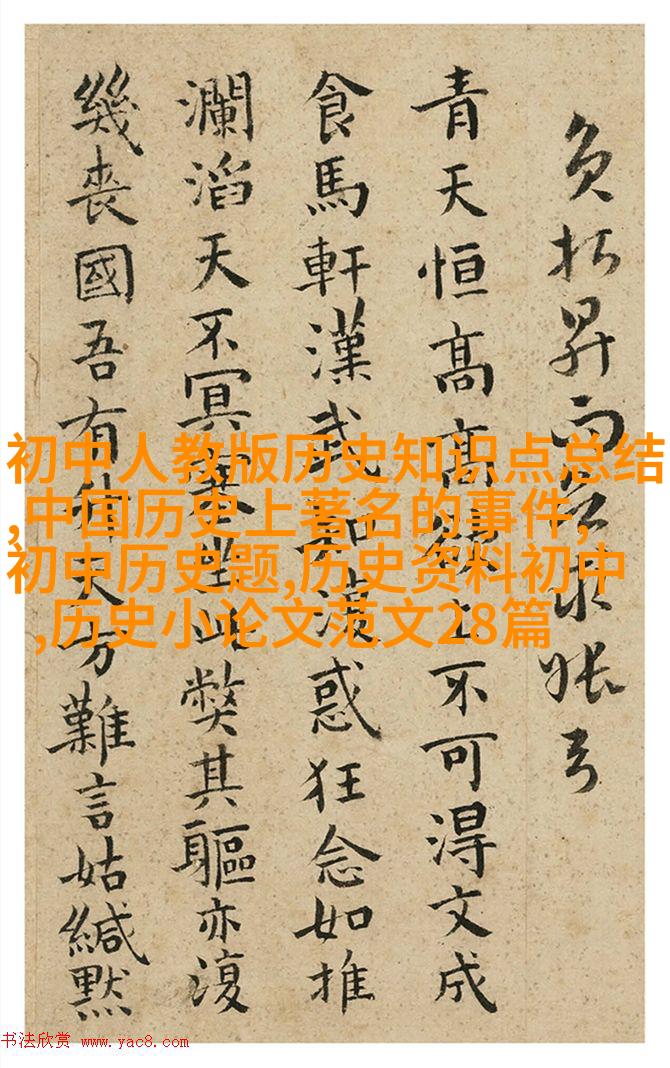 昇而
青天恒高高不可得文成
食馬軒漢武復惑狂念如推
瀾滔天不冥坐此弊其軀亦復
幾喪國吾有天方難言姑緘默
初中人教版历史知识点总结
,中国历史上著名的事件,
初中历史题,历史资料初中
,历史小论文范文28篇
书法欣赏 www.yac8.com